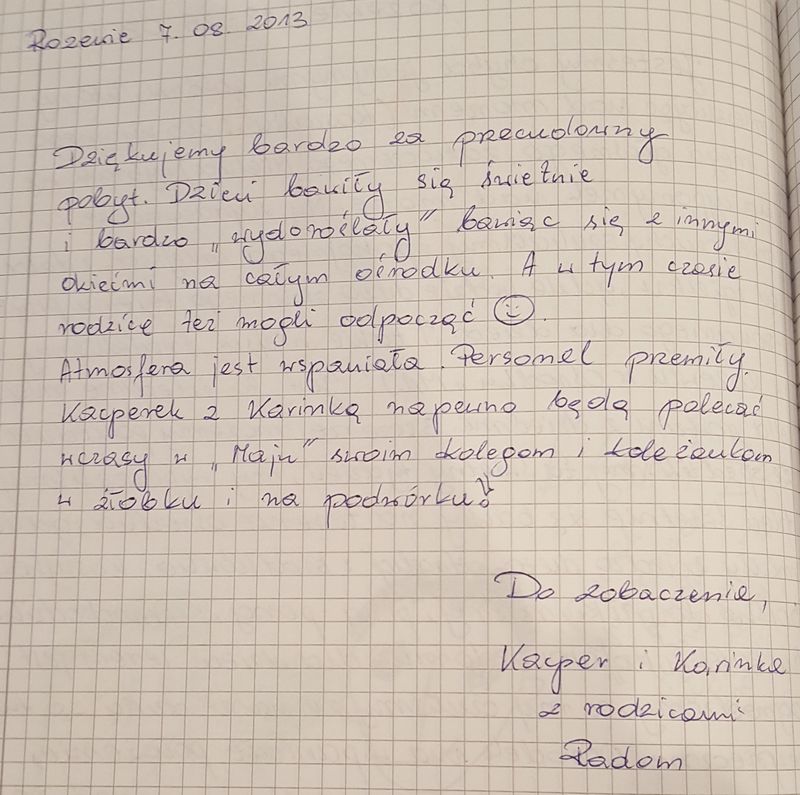 Rozewie 7. 08. 2013
Dziękujemy bardzo za przecudowny
pobyt. Dzieci bawiły się świetnie
i bardzo „wydoroślały” bawiąc się z innymi
dziećmi na całym ośrodku. A w tym czasie
rodzice też mogli odpocząć ☺.
Atmosfera jest wspaniała. Personel przemiły.
Kacperek z Karinką napewno będą polecać
wczasy w „Maju” swoim kolegom i koleżankom
w żłobku i na podwórku!
Do zobaczenia,
Kacper i Karinka
z rodzicami
Radom